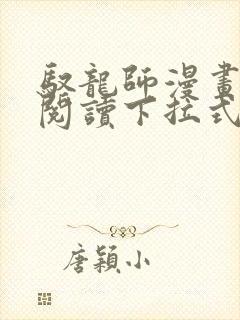 馭龍師漫畫
閱讀下拉式
唐穎小